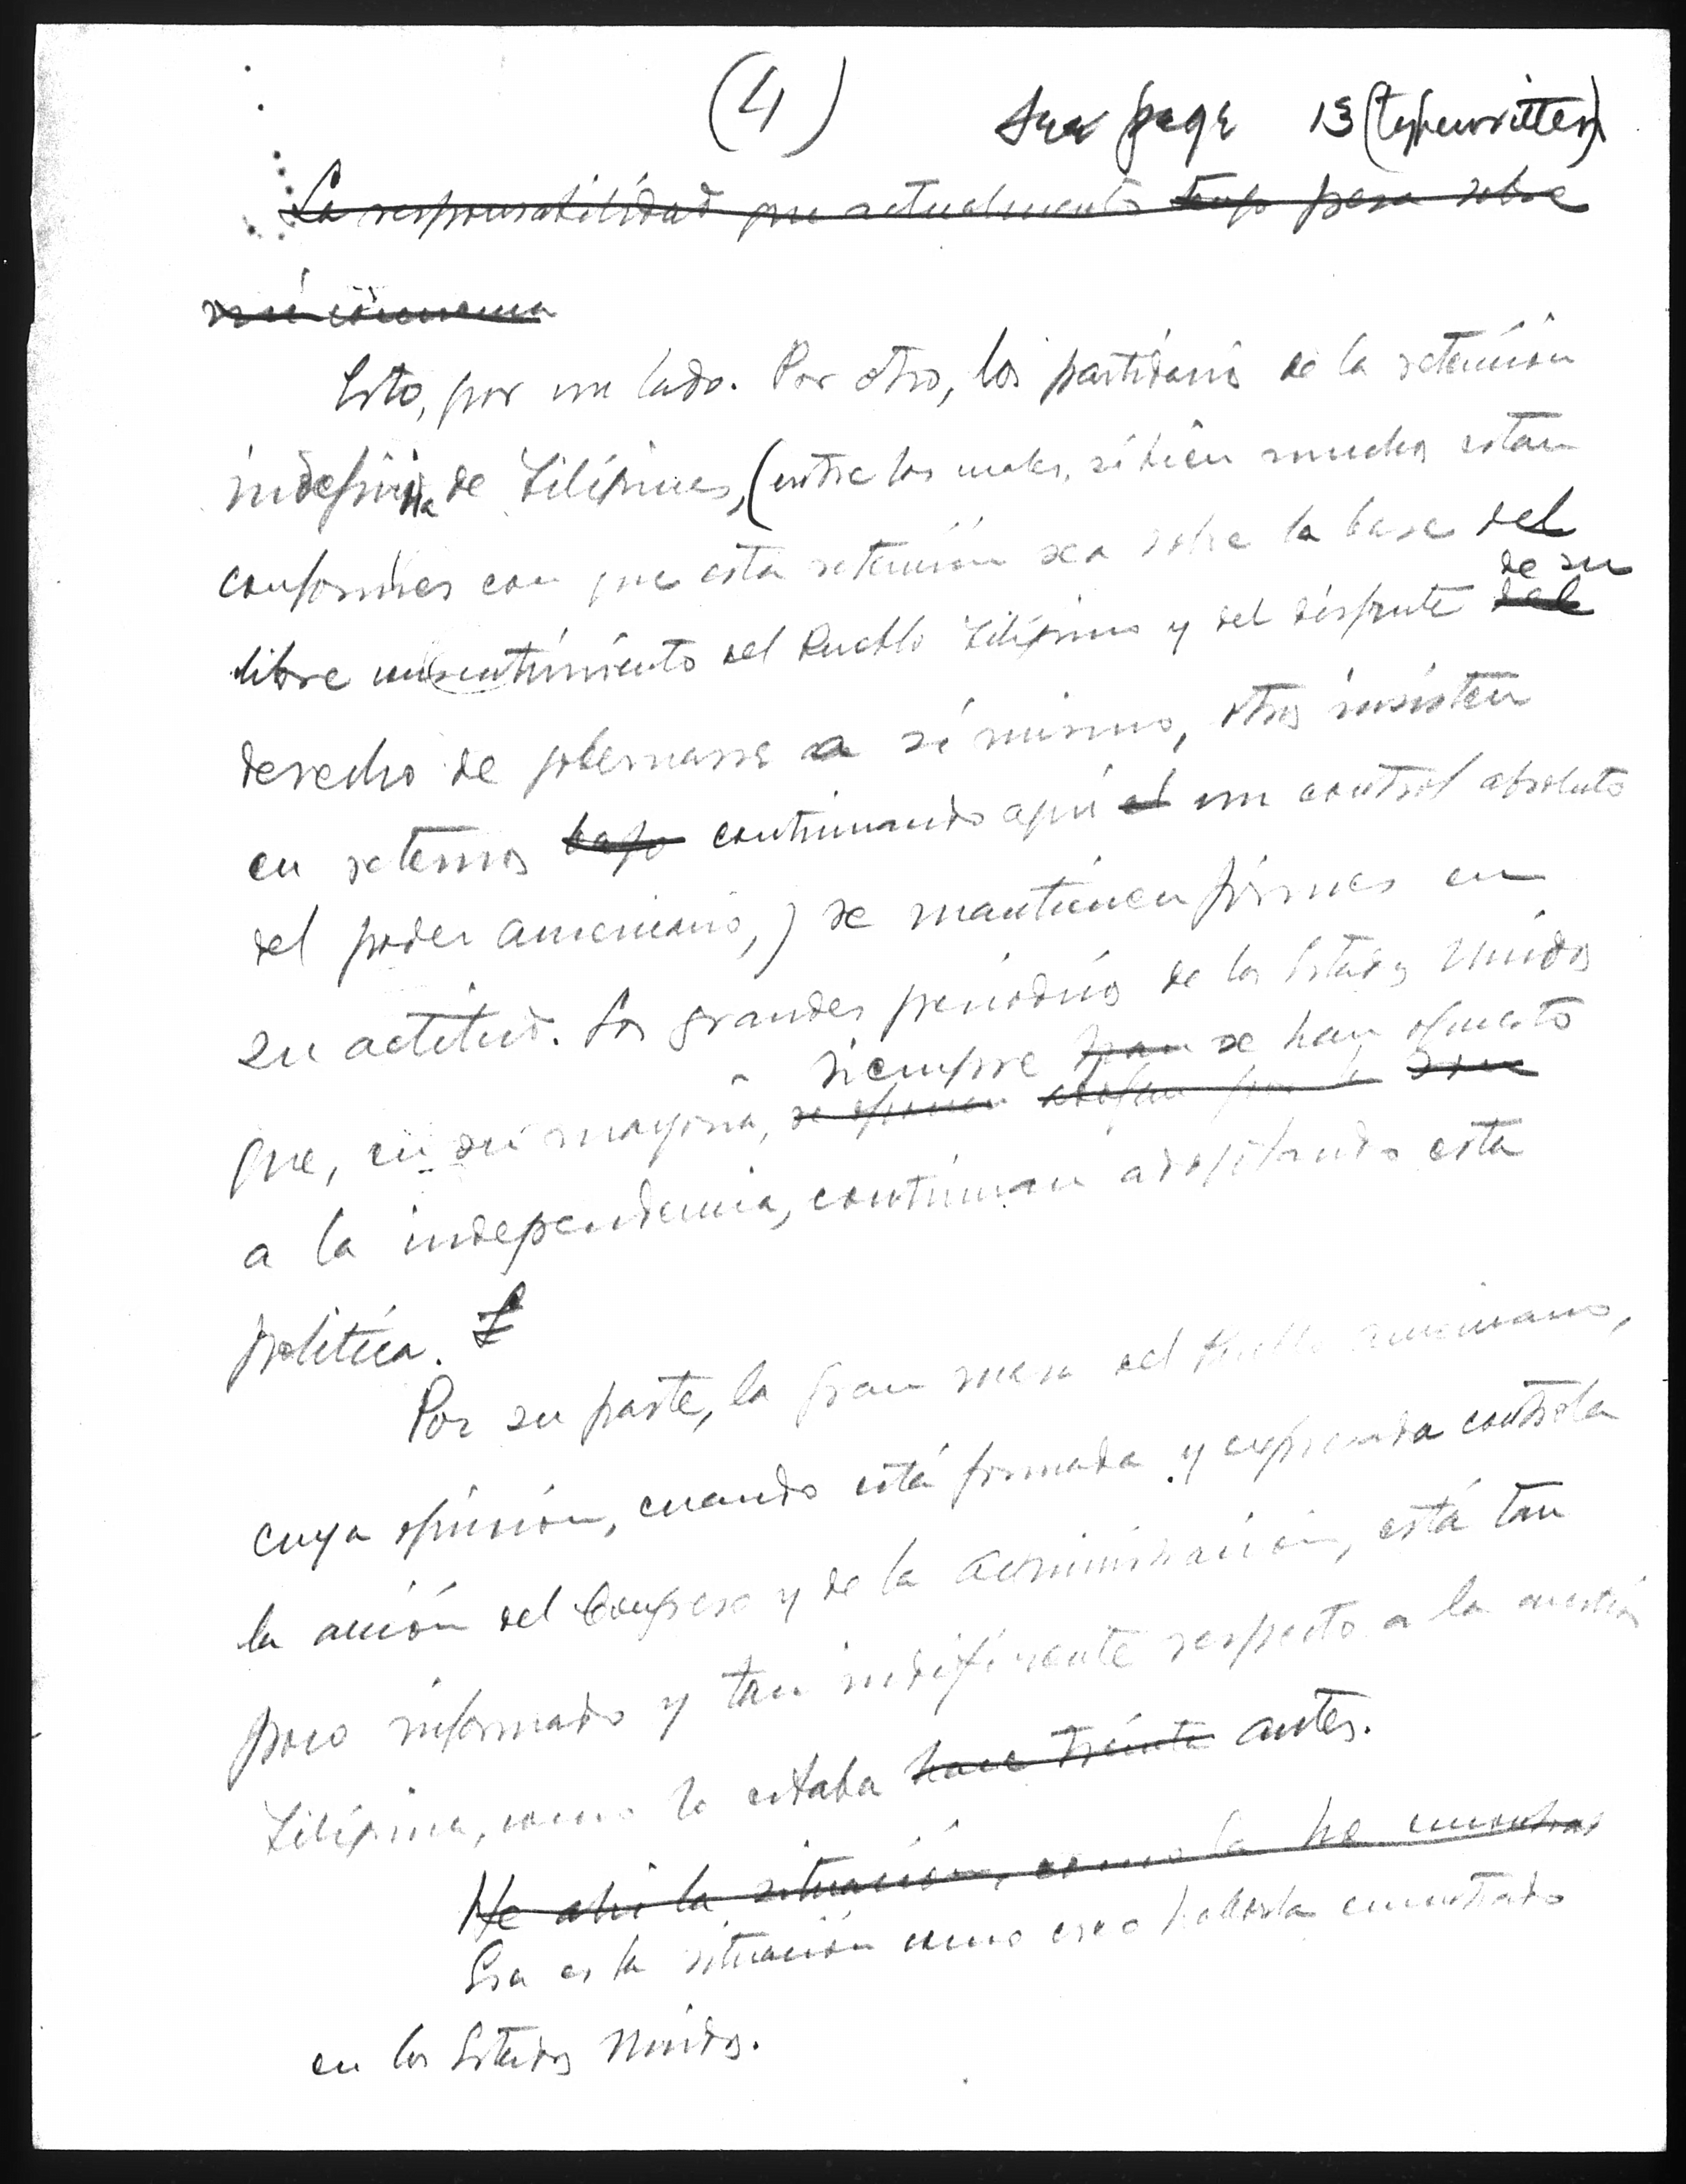 (4) See page 13 (typewritten)
La responsabilidad que actualmente tengo pesa sobre
mi
Esto, por un lado. Por otro, los partidarios de la retención
indefinida de Filipinas, (entre los cuales, si bien muchos estan
conformes con que esta retención sea sobre la base del
libre consentimiento del Pueblo Filipino y del disfrute del de su
derecho de gobernarse a sí mismo, otros insisten
en retenernos bajo continuando aquí el un control absoluto
del poder americano,) se mantienen firmes en
su actitud. Los grandes periódicos de los Estados Unidos
siempre han se han opuesto
que, en su mayoría, se oponen
a la independencia, continúan adoptando esta
política.
Por su parte, la gran masa del Pueblo americano,
cuya opinión, cuando está formada y expresada controla
la acción del Congreso y de la administración, está tan
poco informado y tan indiferente respecto a la cuestión
Filipina, como lo estaba hace treinta antes.
He ahí la situación, como la he encontrad
Esa es la situación como creo haberla encontrado
en los Estados Unidos.